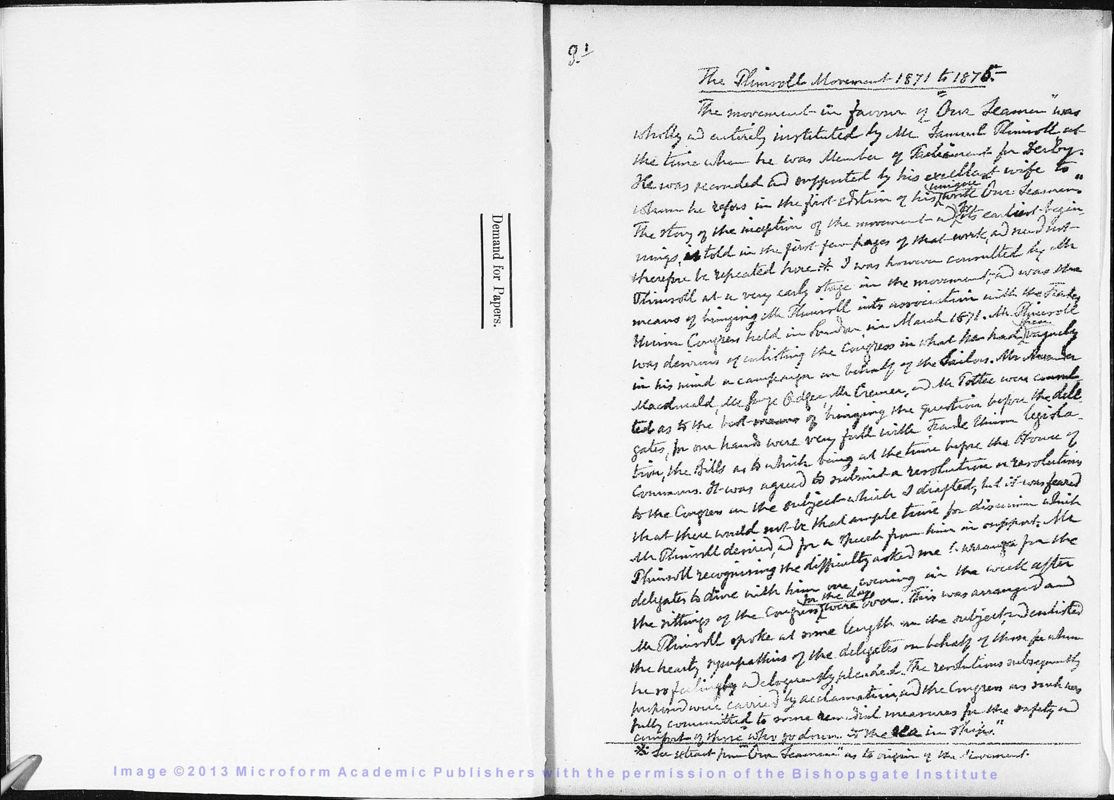 Demand for Papers.
The Plimsoll Movement 1871 to 1875.—
The movement in favour of "Our Seamen" was
wholly and entirely instituted by Mr Samuel Plimsoll at
the time when he was Member of Parliament for Derby.
He was seconded and supported by his excellent wife to
unique
whom he refers in the first edition of his work "Our Seamen"
The story of the inception of the movement and its earliest begin-
nings, is told in the first few pages of that work, and need not
therefore be repeated here.* I was however consulted by Mr
Plimsoll at a very early stage in the movement, and was the
means of bringing Mr Plimsoll into association with the Trades
Union Congress held in London in March 1871. Mr Plimsoll
was desirous of enlisting the Congress in what was vaguely
in his mind a campaign on behalf of the Sailors. Mr Alexander
Macdonald, Mr George Odger Mr Cremer, and Mr Potter were consul-
ted as to the best means of bringing the question before the dele-
gates, for our hands were very full with Trade Union legisla-
tion, the Bills as to which being at the time before the House of
Commons. It was agreed to submit a resolution or resolutions
to the Congress on the subject which I drafted, but it was feared
that there would not be that ample time for discussion which
Mr Plimsoll desired, and for a speech from him in support. Mr
Plimsoll recognising the difficulty asked me to arrange for the
delegates to dine with him one evening in the week after
for the day
the sittings of the Congress were over. This was arranged and
Mr Plimsoll spoke at some length on the subject, and enlisted
the hearty sympathies of the delegates on behalf of those for whom
he so feelingly and eloquently pleaded. The resolutions subsequently
proposed were carried by acclamation, and the Congress as such was
fully committed to some remedial measures for the safety and
comfort of those "who go down to the sea in ships."
* See extract from "Our Seamen" as to origin of the Movement
Image ©2013 Microform Academic Publishers with the permission of the Bishopsgate Institute